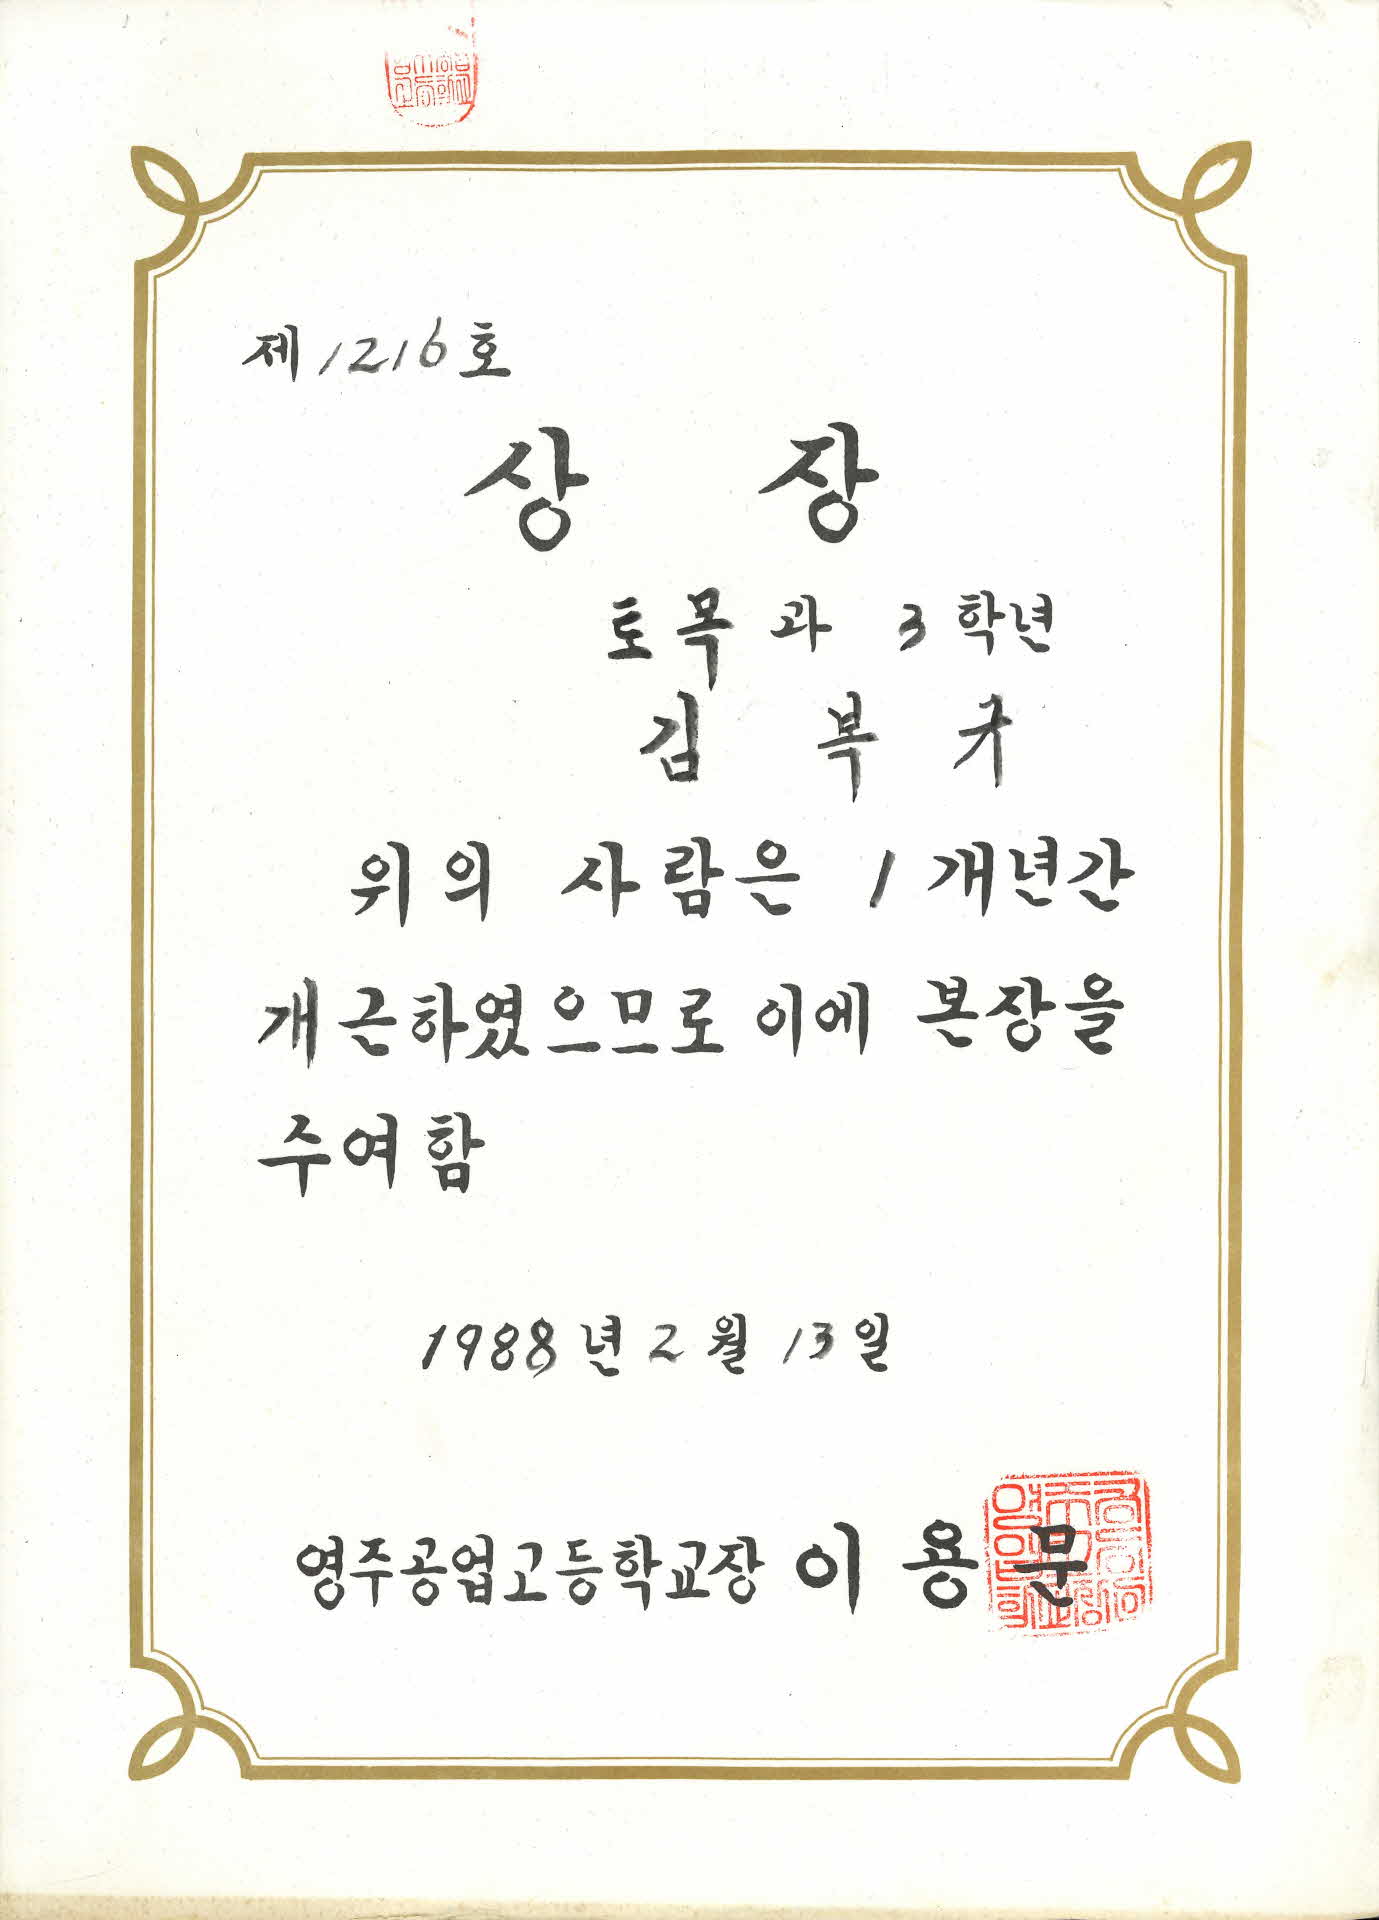 제 1216 호
상 장
토목과 3학년
김 복
위의 사람은 1개년간
개근하였으므로 이에 본장을
주여함
1988년 2월 13일
영주공업고등학교장 이용문